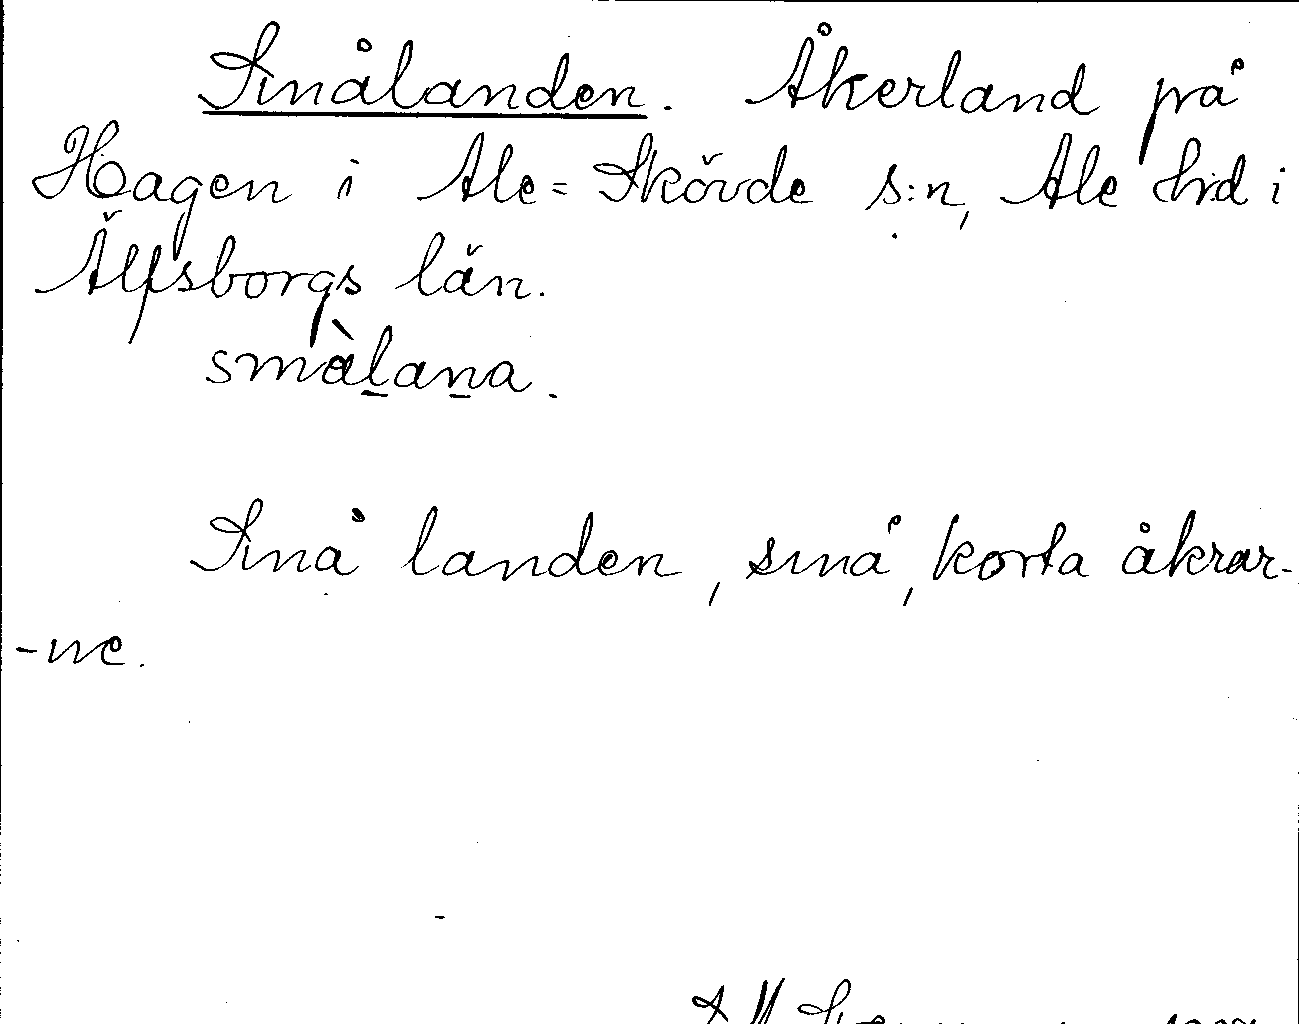 Smålanden. Åkerland på
Hagen i Ale=Skövde s:n, Ale hrd i
Älfsborgs län.
smàlana.
Små landen, små, korta åkrar-
-ne.